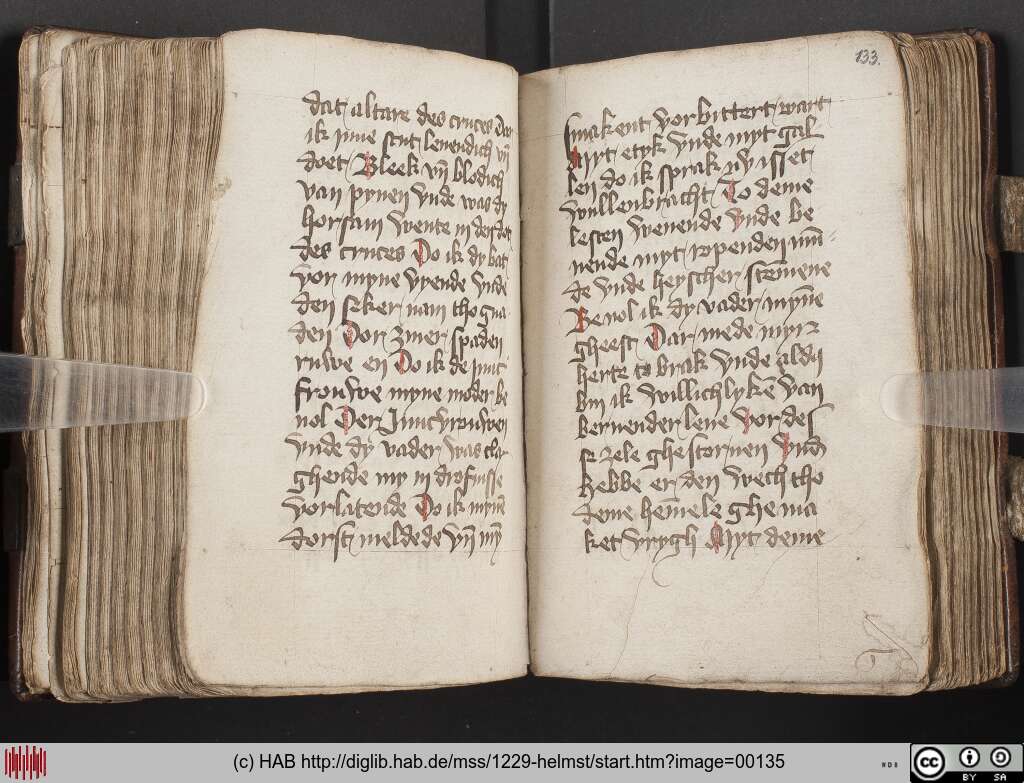 dat altare des cruces Der
ik juwe scut levendich vn̄
doet Bleek vn̄ blodich
van pynen vnde was dy
horsam wente in den doet
des cruces Do ik dy bat
vor myne vyende vnde
den seker nam tho gna
den Vor
ruwe en Do ik de junc
frouwe myne moder be
vol Der Juncvrouwen
vnde dy vader was cla
ghende my in drofnisse
vorlatende Do ik mynē
dorst meldede vn̄ mȳ
133.
smak ent vorbittert wart
Myt etyk vnde myt gal
len do ik sprak nv is set
vullenbracht To deme
lesten wenende vnde be
nende myt ropenden mū
de vnde heyscher stemene
Bevol ik dy vader mynē
gheest Dar mede myn
herte to brak vnde aldꝰ
bin ik willichlykē van
bernender leve vor des
sele ghestorven vnd
hebbe er den wech tho
deme hemēle ghema
ket vrygh Myt deme
(c) HAB http://diglib.hab.de/mss/1229-helmst/start.htm?image=00135
WDB
cc
BY SA